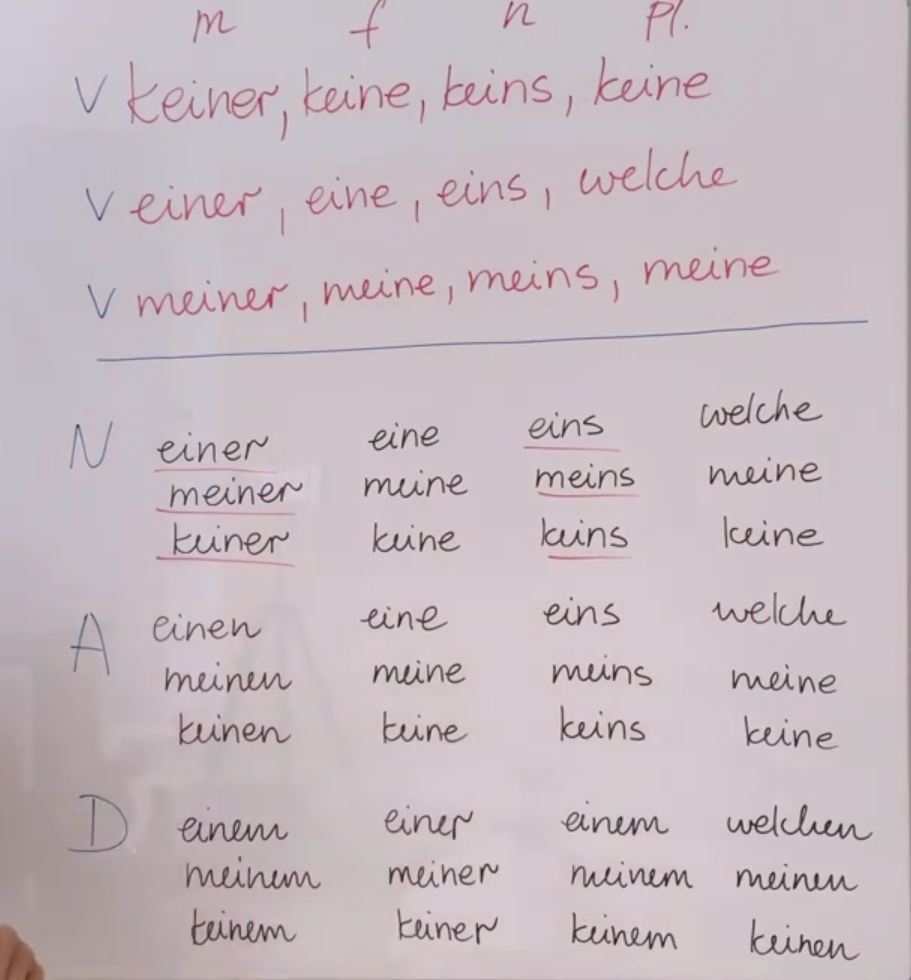 m f n Pl.
V keiner, keine, keins, keine
V einer, eine, eins, welche
V meiner, meine, meins, meine
N einer eine eins welche
meiner meine meins meine
keiner keine keins keine
A einen eine eins welche
meinen meine meins meine
keinen keine keins keine
D einem einer einem welchen
meinem meiner meinem meinen
keinem keiner keinem keinen